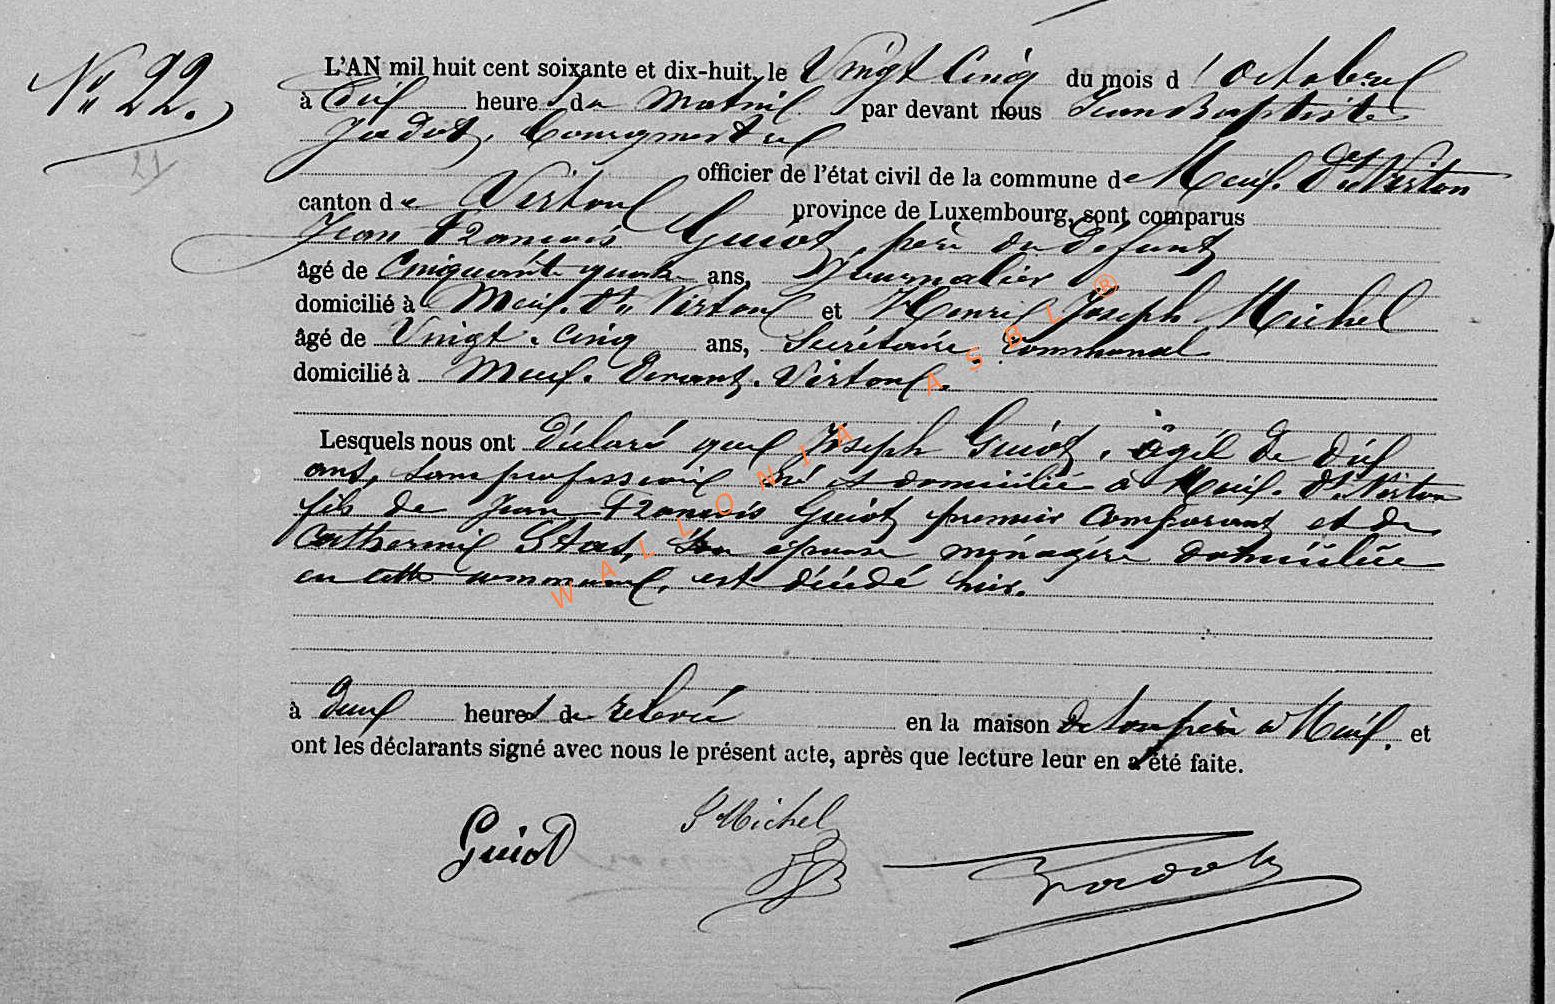 N° 22.
21
L'AN mil huit cent soixante et dix-huit, le Vingt Cinq du mois d'Octobre
à dix heures du matin par devant nous Jean Baptiste
Jadot, Bourgmestre
officier de l'état civil de la commune de Meix dt Virton
canton de Virton province de Luxembourg, sont comparus
Jean François Guiot, père du défunt
âgé de Cinquante quatre ans, Journalier
domicilié à Meix. dt Virton et Henri Joseph Michel
âgé de Vingt-cinq ans, Secrétaire Communal
domicilié à Meix. devant. Virton.
Lesquels nous ont déclaré que Joseph Guiot, âgé de dix
ans, sans profession né et domicilié à Meix. dt Virton
fils de Jean François Guiot premier Comparant et de
Catherine son épouse ménagère domiciliée
en cette commune, est décédé hier.
à deux heures de relevée en la maison de son père à Meix. et
ont les déclarants signé avec nous le présent acte, après que lecture leur en a été faite.
Guiot Michel Jadot
WALLONIA ASBL ®